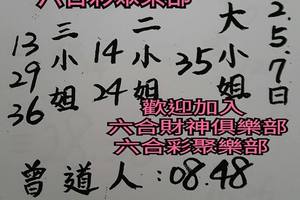 六合彩聚樂部
2.5.7日
大小姐
35
二小姐
14
24
三小姐
13
29
36
歡迎加入
六合財神俱樂部
六合彩聚樂部
曾道人:08.48